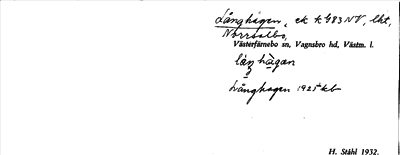 Långhagen, ek k G83 NV, lht,
Norrsalbo,
Västerfärnebo sn, Vagnsbro hd, Västm. l.
lån hagan
Långhagen 1925 kb
H. Ståhl 1932.